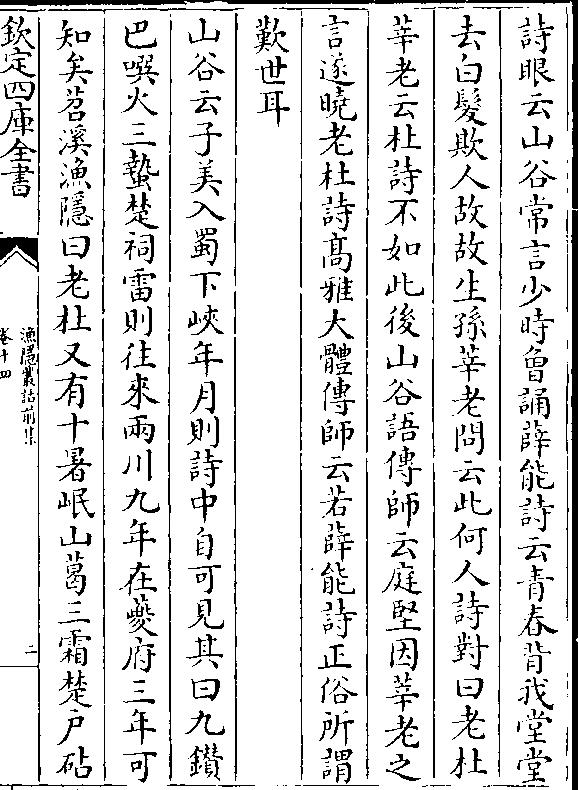 詩眼云山谷常言少時曾誦薛能詩云青春背我堂堂
去白髮欺人故故生孫莘老問云此何人詩對曰老杜
莘老云杜詩不如此後山谷語傳師云庭堅因莘老之
言遂曉老杜詩髙雅大體傳師云若薛能詩正俗所謂
歎世耳
山谷云子美入蜀下峽年月則詩中自可見其曰九鑽
巴噀火三蟄楚祠雷則往來兩川九年在夔府三年可
知矣苕溪漁隱曰老杜又有十暑岷山葛三霜楚户砧
欽定四庫全書
漁隱叢話前集
卷十四
二